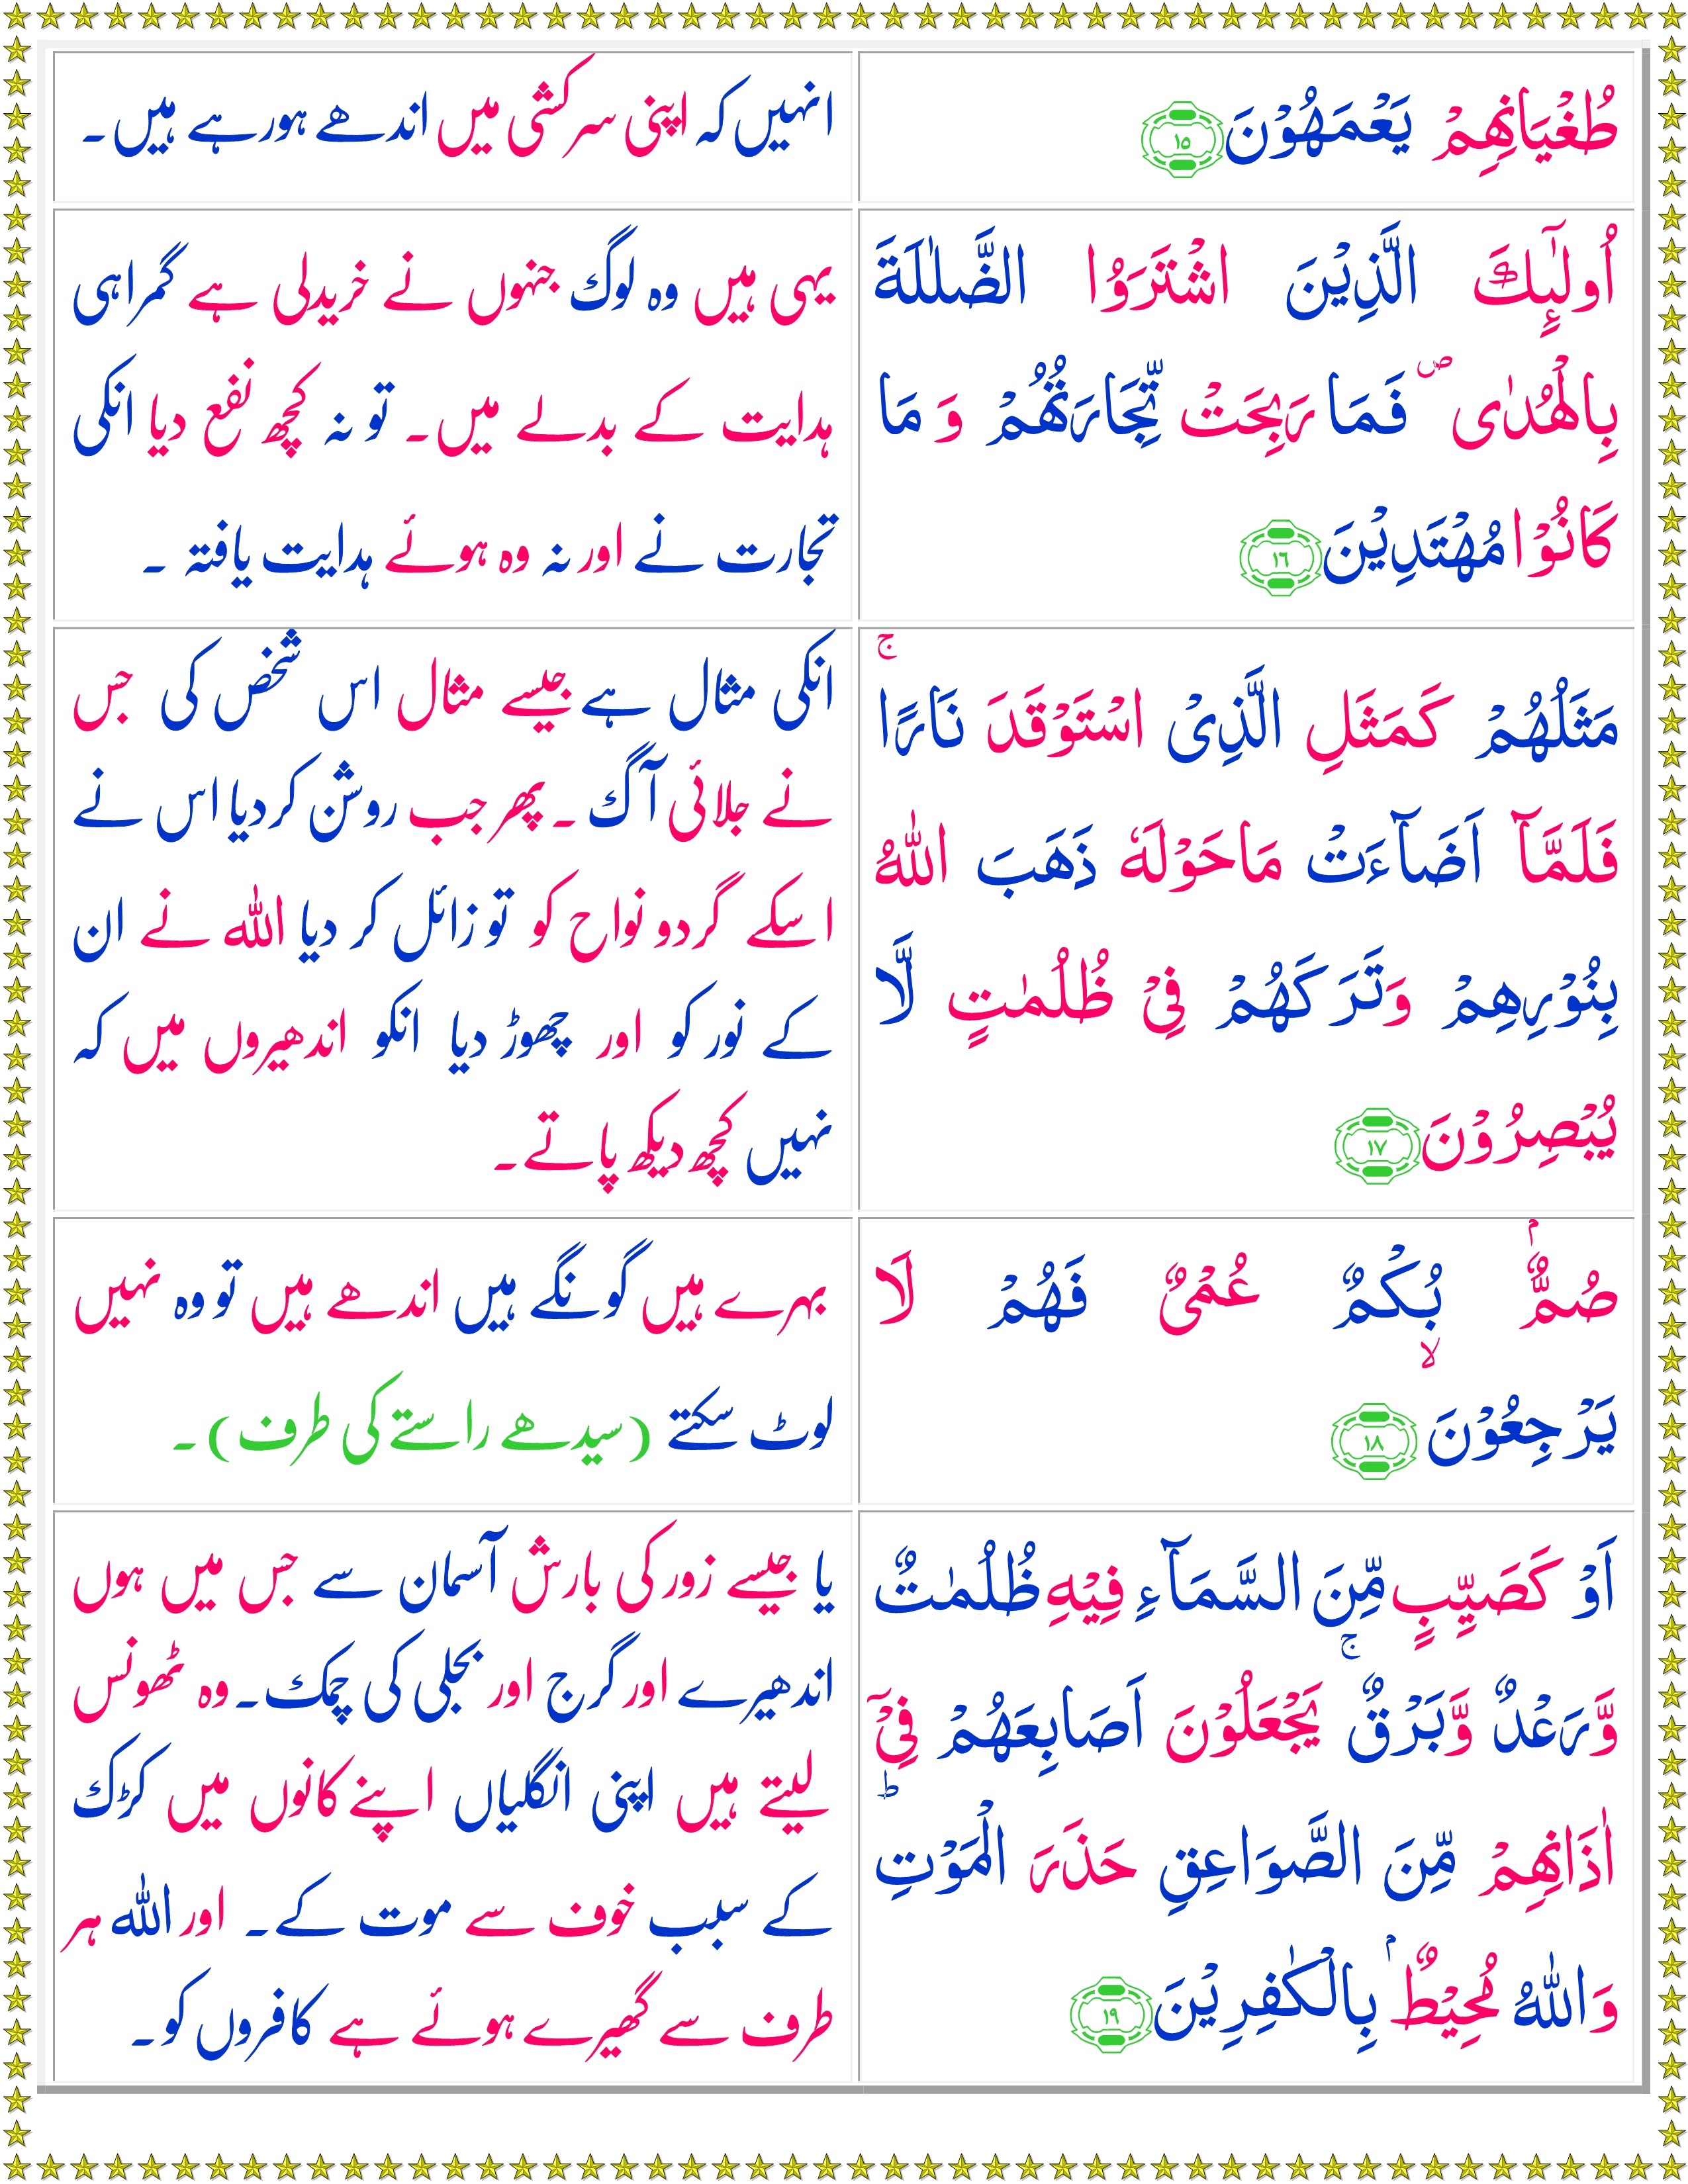 طُغْيَانِهِمْ يَعْمَهُوْنَ ١٥
انہیں کہ اپنی سرکشی میں اندھے ہورہے ہیں۔
اُولٰٓئِكَ الَّذِيْنَ اشْتَرَوُا الضَّلٰلَةَ
بِالْهُدٰى ۪ فَمَا رَبِحَتْ تِّجَارَتُهُمْ وَ مَا
كَانُوْا مُهْتَدِيْنَ ١٦
یہی ہیں وہ لوگ جنہوں نے خریدلی ہے گمراہی
ہدایت کے بدلے میں۔ تو نہ کچھ نفع دیا انکی
تجارت نے اور نہ وہ ہوئے ہدایت یافتہ ۔
مَثَلُهُمْ كَمَثَلِ الَّذِى اسْتَوْقَدَ نَارًا ۚ
فَلَمَّآ اَضَآءَتْ مَا حَوْلَهٗ ذَهَبَ اللّٰهُ
بِنُوْرِهِمْ وَتَرَكَهُمْ فِىْ ظُلُمٰتٍ لَّا
يُبْصِرُوْنَ ١٧
انکی مثال ہے جیسے مثال اس شخص کی جس
نے جلائی آگ ۔ پھر جب روشن کردیا اس نے
اسکے گردو نواح کو تو زائل کر دیا اللہ نے ان
کے نور کو اور چھوڑ دیا انکو اندھیروں میں کہ
نہیں کچھ دیکھ پاتے۔
صُمٌّۢ بُكْمٌ عُمْىٌ فَهُمْ لَا ۙ
يَرْجِعُوْنَ ١٨
بہرے ہیں گونگے ہیں اندھے ہیں تو وہ نہیں
لوٹ سکتے (سیدھے راستے کی طرف)۔
اَوْ كَصَيِّبٍ مِّنَ السَّمَآءِ فِيْهِ ظُلُمٰتٌ
وَّرَعْدٌ وَّبَرْقٌ ۚ يَجْعَلُوْنَ اَصَابِعَهُمْ فِىْٓ
اٰذَانِهِمْ مِّنَ الصَّوَاعِقِ حَذَرَ الْمَوْتِ ؕ
وَاللّٰهُ مُحِيْطٌۢ بِالْكٰفِرِيْنَ ١٩
یا جیسے زور کی بارش آسمان سے جس میں ہوں
اندھیرے اور گرج اور بجلی کی چمک۔ وہ ٹھونس
لیتے ہیں اپنی انگلیاں اپنے کانوں میں کڑک
کے سبب خوف سے موت کے۔ اور اللہ ہر
طرف سے گھیرے ہوئے ہے کافروں کو۔